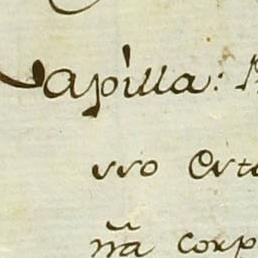 Capilla:
vro Crto
nr̃a corp